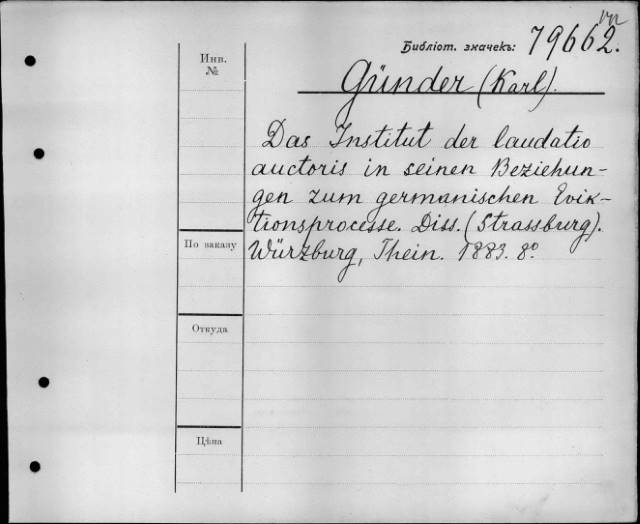 Библіот. значекъ: 79662.
Инв.
№
Günder (Karl).
Das Institut der laudatio
auctoris in seinen Beziehun-
gen zum germanischen Evik-
tionsprocesse. Diss. (Strassburg).
Würzburg, Thein. 1883. 8º.
По заказу
Откуда
Цѣна